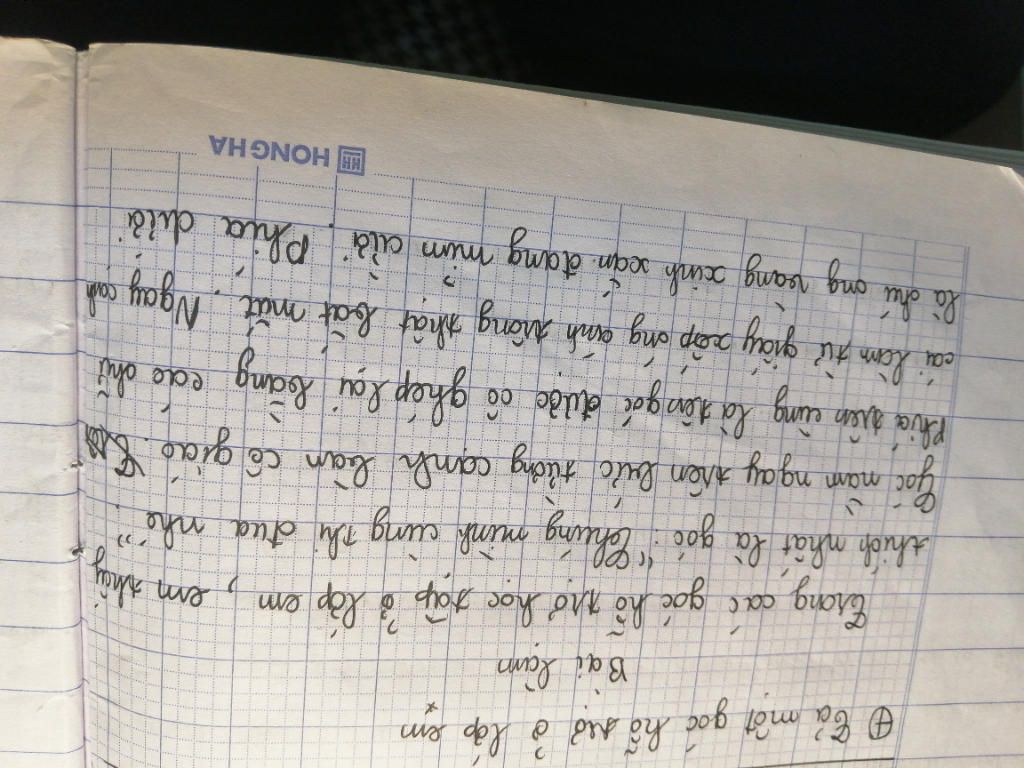 ⊕ Tả một góc hỗ trợ ở lớp em
Bài làm
Trong các góc hỗ trợ học tập ở lớp em, em thấy
thích nhất là góc: "Chúng mình cùng thi đua nhé".
Góc nằm ngay trên bức tường cạnh bàn cô giáo.
Phía trên cùng là tên góc được cô ghép lại bằng các chữ
cái làm từ giấy xốp óng ánh trông thật bắt mắt. Ngay cạnh
là chú ong vàng xinh xắn đang mỉm cười. Phía dưới
HONG HA